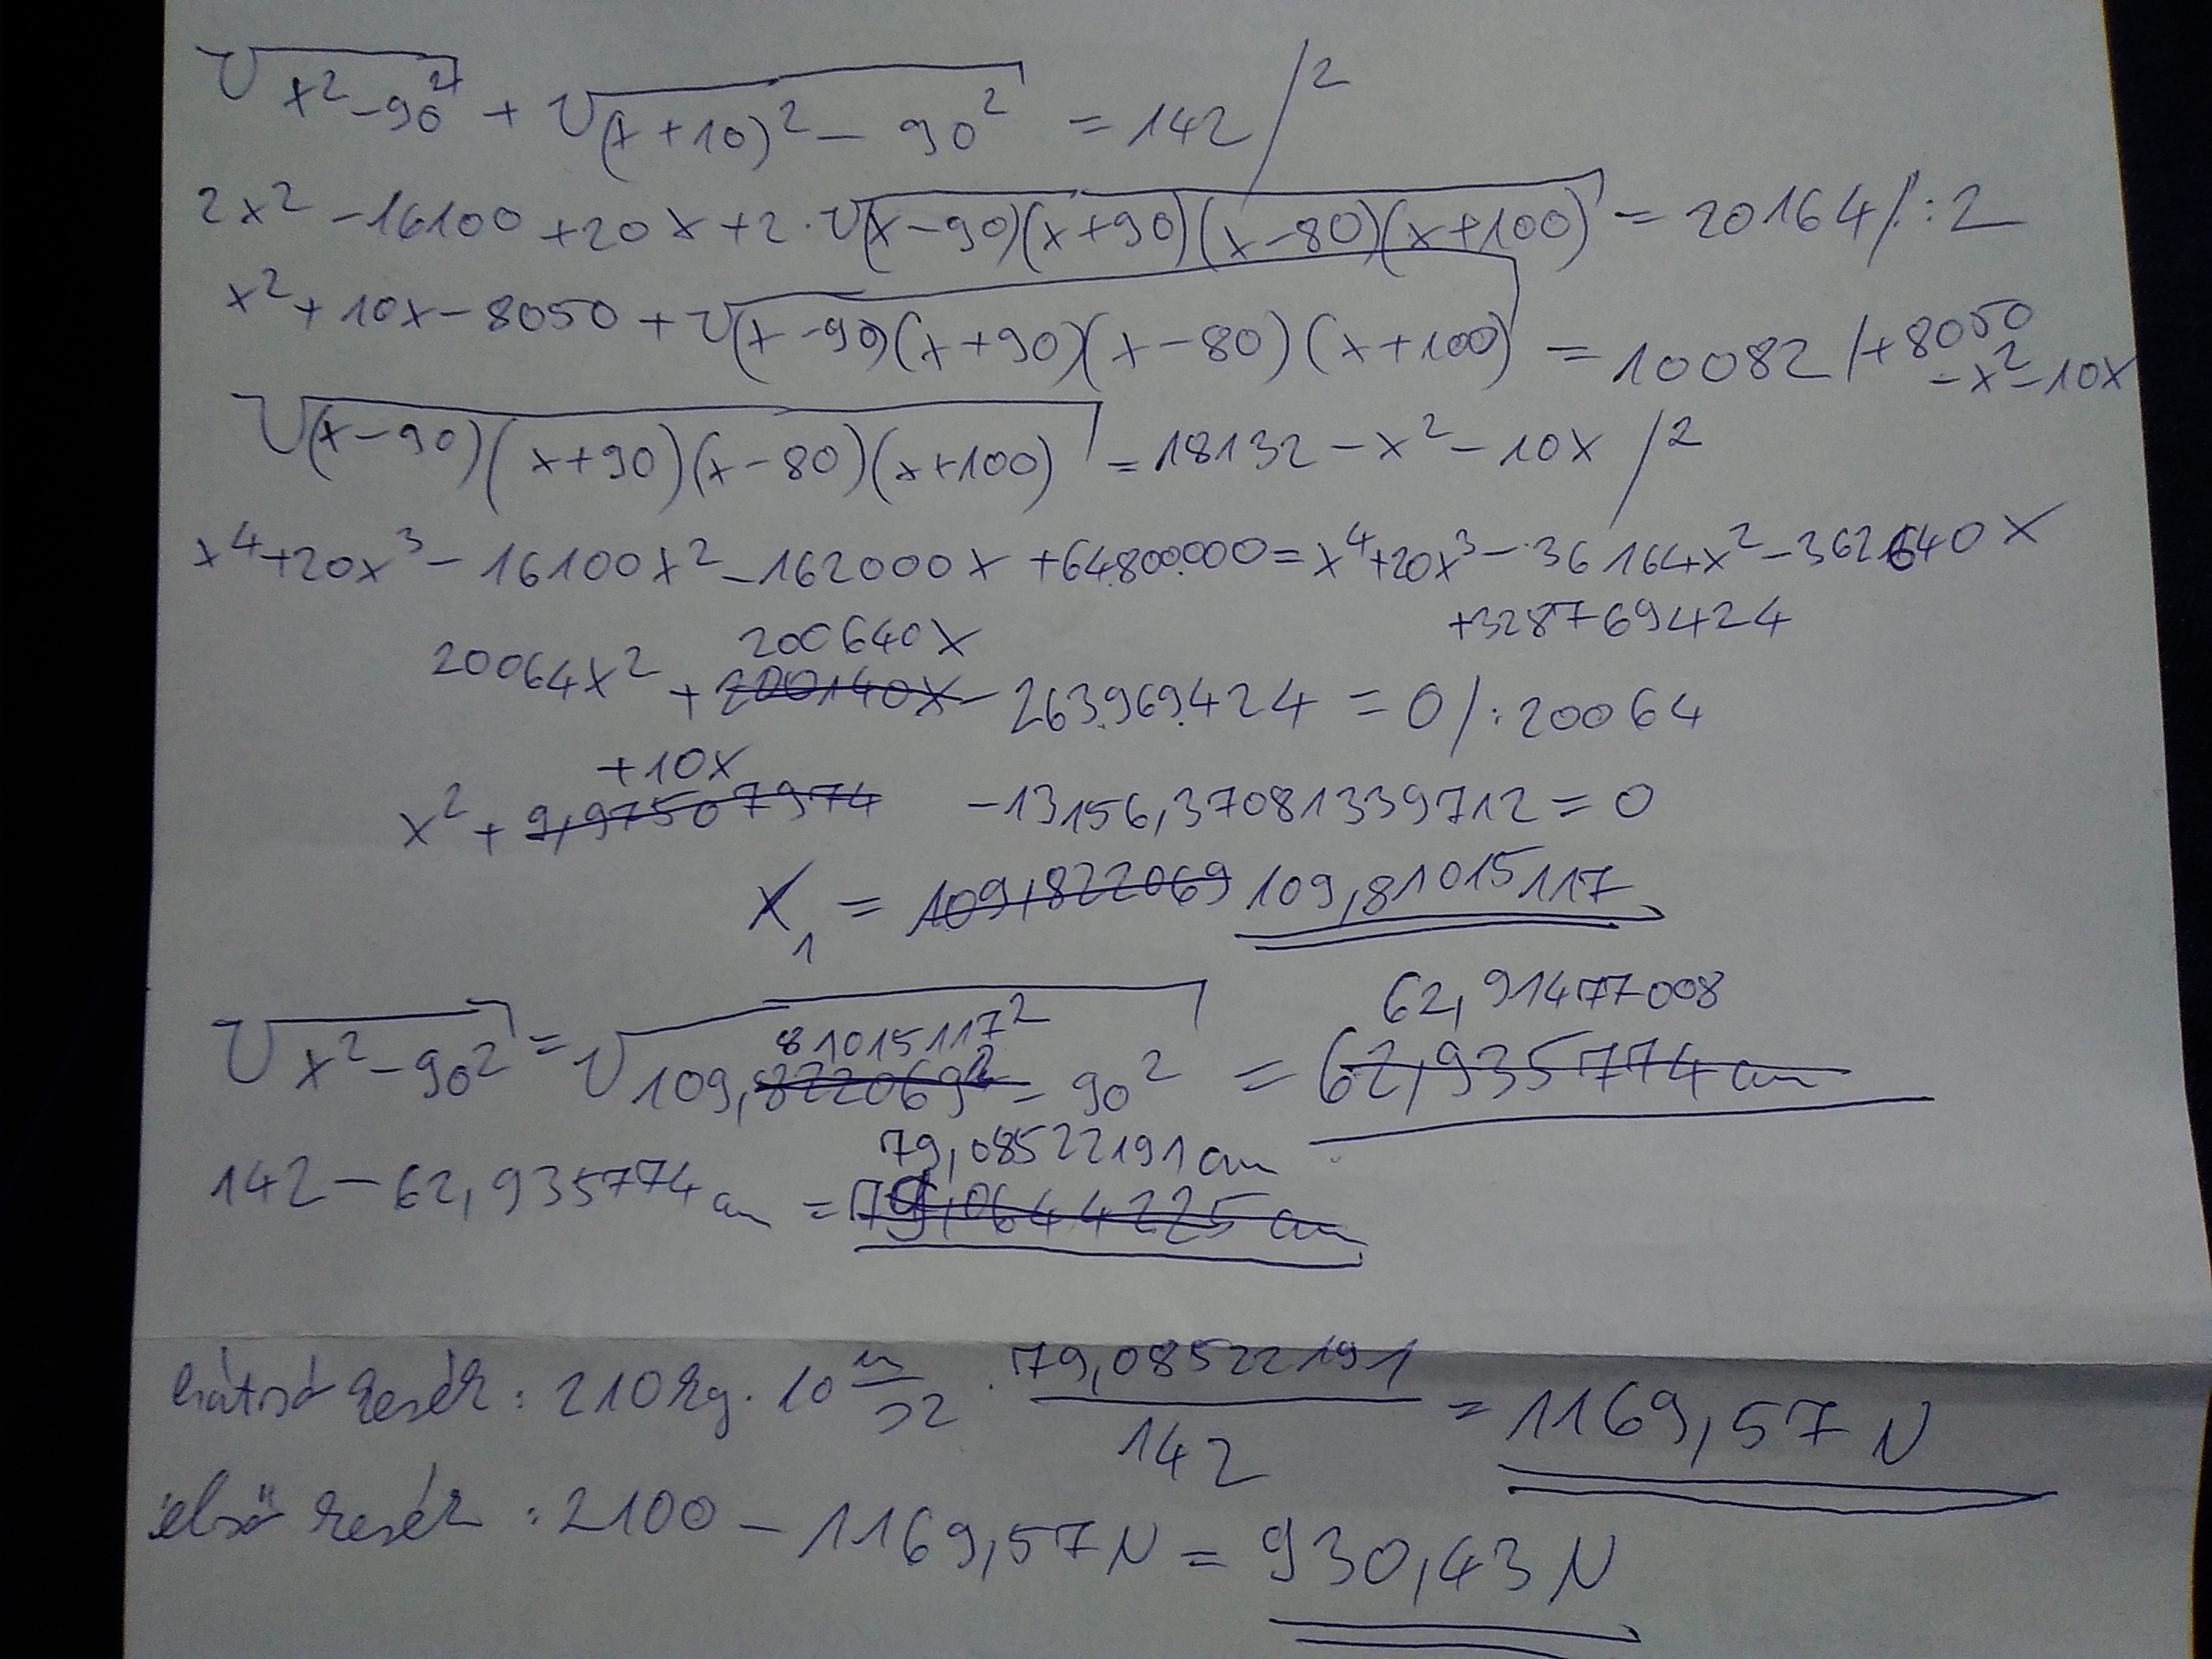 √(x² - 90²) + √((x+10)² - 90²) = 142 /²
2x² - 16100 + 20x + 2·√((x-90)(x+90)(x-80)(x+100)) = 20164 /:2
x² + 10x - 8050 + √((x-90)(x+90)(x-80)(x+100)) = 10082 /+8050 -x² -10x
√((x-90)(x+90)(x-80)(x+100)) = 18132 - x² - 10x /²
x⁴ + 20x³ - 16100x² - 162000x + 64.800.000 = x⁴ + 20x³ - 36164x² - 362640x
+328769424
200640x
20064x² + ~~200140x~~ - 263.969.424 = 0 /:20064
+10x
x² + ~~9,97507974~~ - 13156,37081339712 = 0
x₁ = ~~109,822069~~ 109,81015117
62,91477008
81015117²
√(x² - 90²) = √(109,~~822069²~~ - 90²) = ~~62,935774 cm~~
79,08522191 cm
142 - 62,935774 cm = ~~79,0644225 cm~~
hátsó kerék: 210 kg · 10 m/s² · 79,08522191/142 = 1169,57 N
első kerék: 2100 - 1169,57 N = 930,43 N